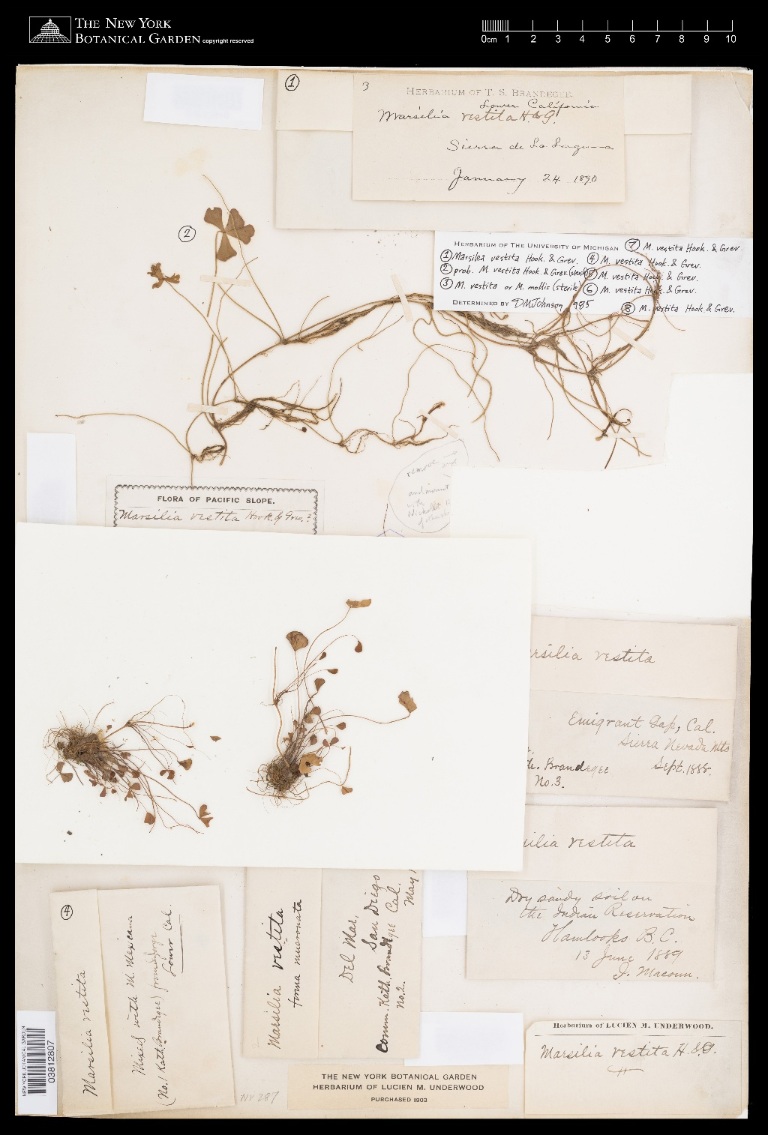 THE NEW YORK
BOTANICAL GARDEN copyright reserved
0cm 1 2 3 4 5 6 7 8 9 10
1
3
HERBARIUM OF T. S. BRANDEGEE.
Lower California
Marsilia vestita H. & G.
Sierra de La Laguna
January 24 1890
2
HERBARIUM OF THE UNIVERSITY OF MICHIGAN
① Marsilea vestita Hook. & Grev.
② prob. M. vestita Hook & Grev.
③ M. vestita or M. mollis (sterile)
④ M. vestita Hook. & Grev.
⑤ M. vestita Hook. & Grev.
⑥ M. vestita Hook. & Grev.
⑦ M. vestita Hook. & Grev
⑧ M. vestita Hook & Grev.
DETERMINED BY DM Johnson 1985
FLORA OF PACIFIC SLOPE.
Marsilia vestita Hook. & Grev.
with
arsilia vestita
Emigrant Gap, Cal.
Sierra Nevada Mts
Sept. 1888.
Brandegee
No. 3.
ilia vestita
Dry sandy soil on
the Indian Reservation
Kamloops B.C.
13 June 1889
J. Macoun.
4
Marsilia vestita
Mixed with M. Mexicana
(No. 1 Kath. Brandegee)
Lower Cal.
Marsilia vestita
forma mucronata
Del Mar,
San Diego
Cal.
May 1
Comm. Kath. Brandegee
No. 2.
Herbarium of LUCIEN M. UNDERWOOD.
Marsilia vestita H. & G.
THE NEW YORK BOTANICAL GARDEN
HERBARIUM OF LUCIEN M. UNDERWOOD
PURCHASED 1903
03812807